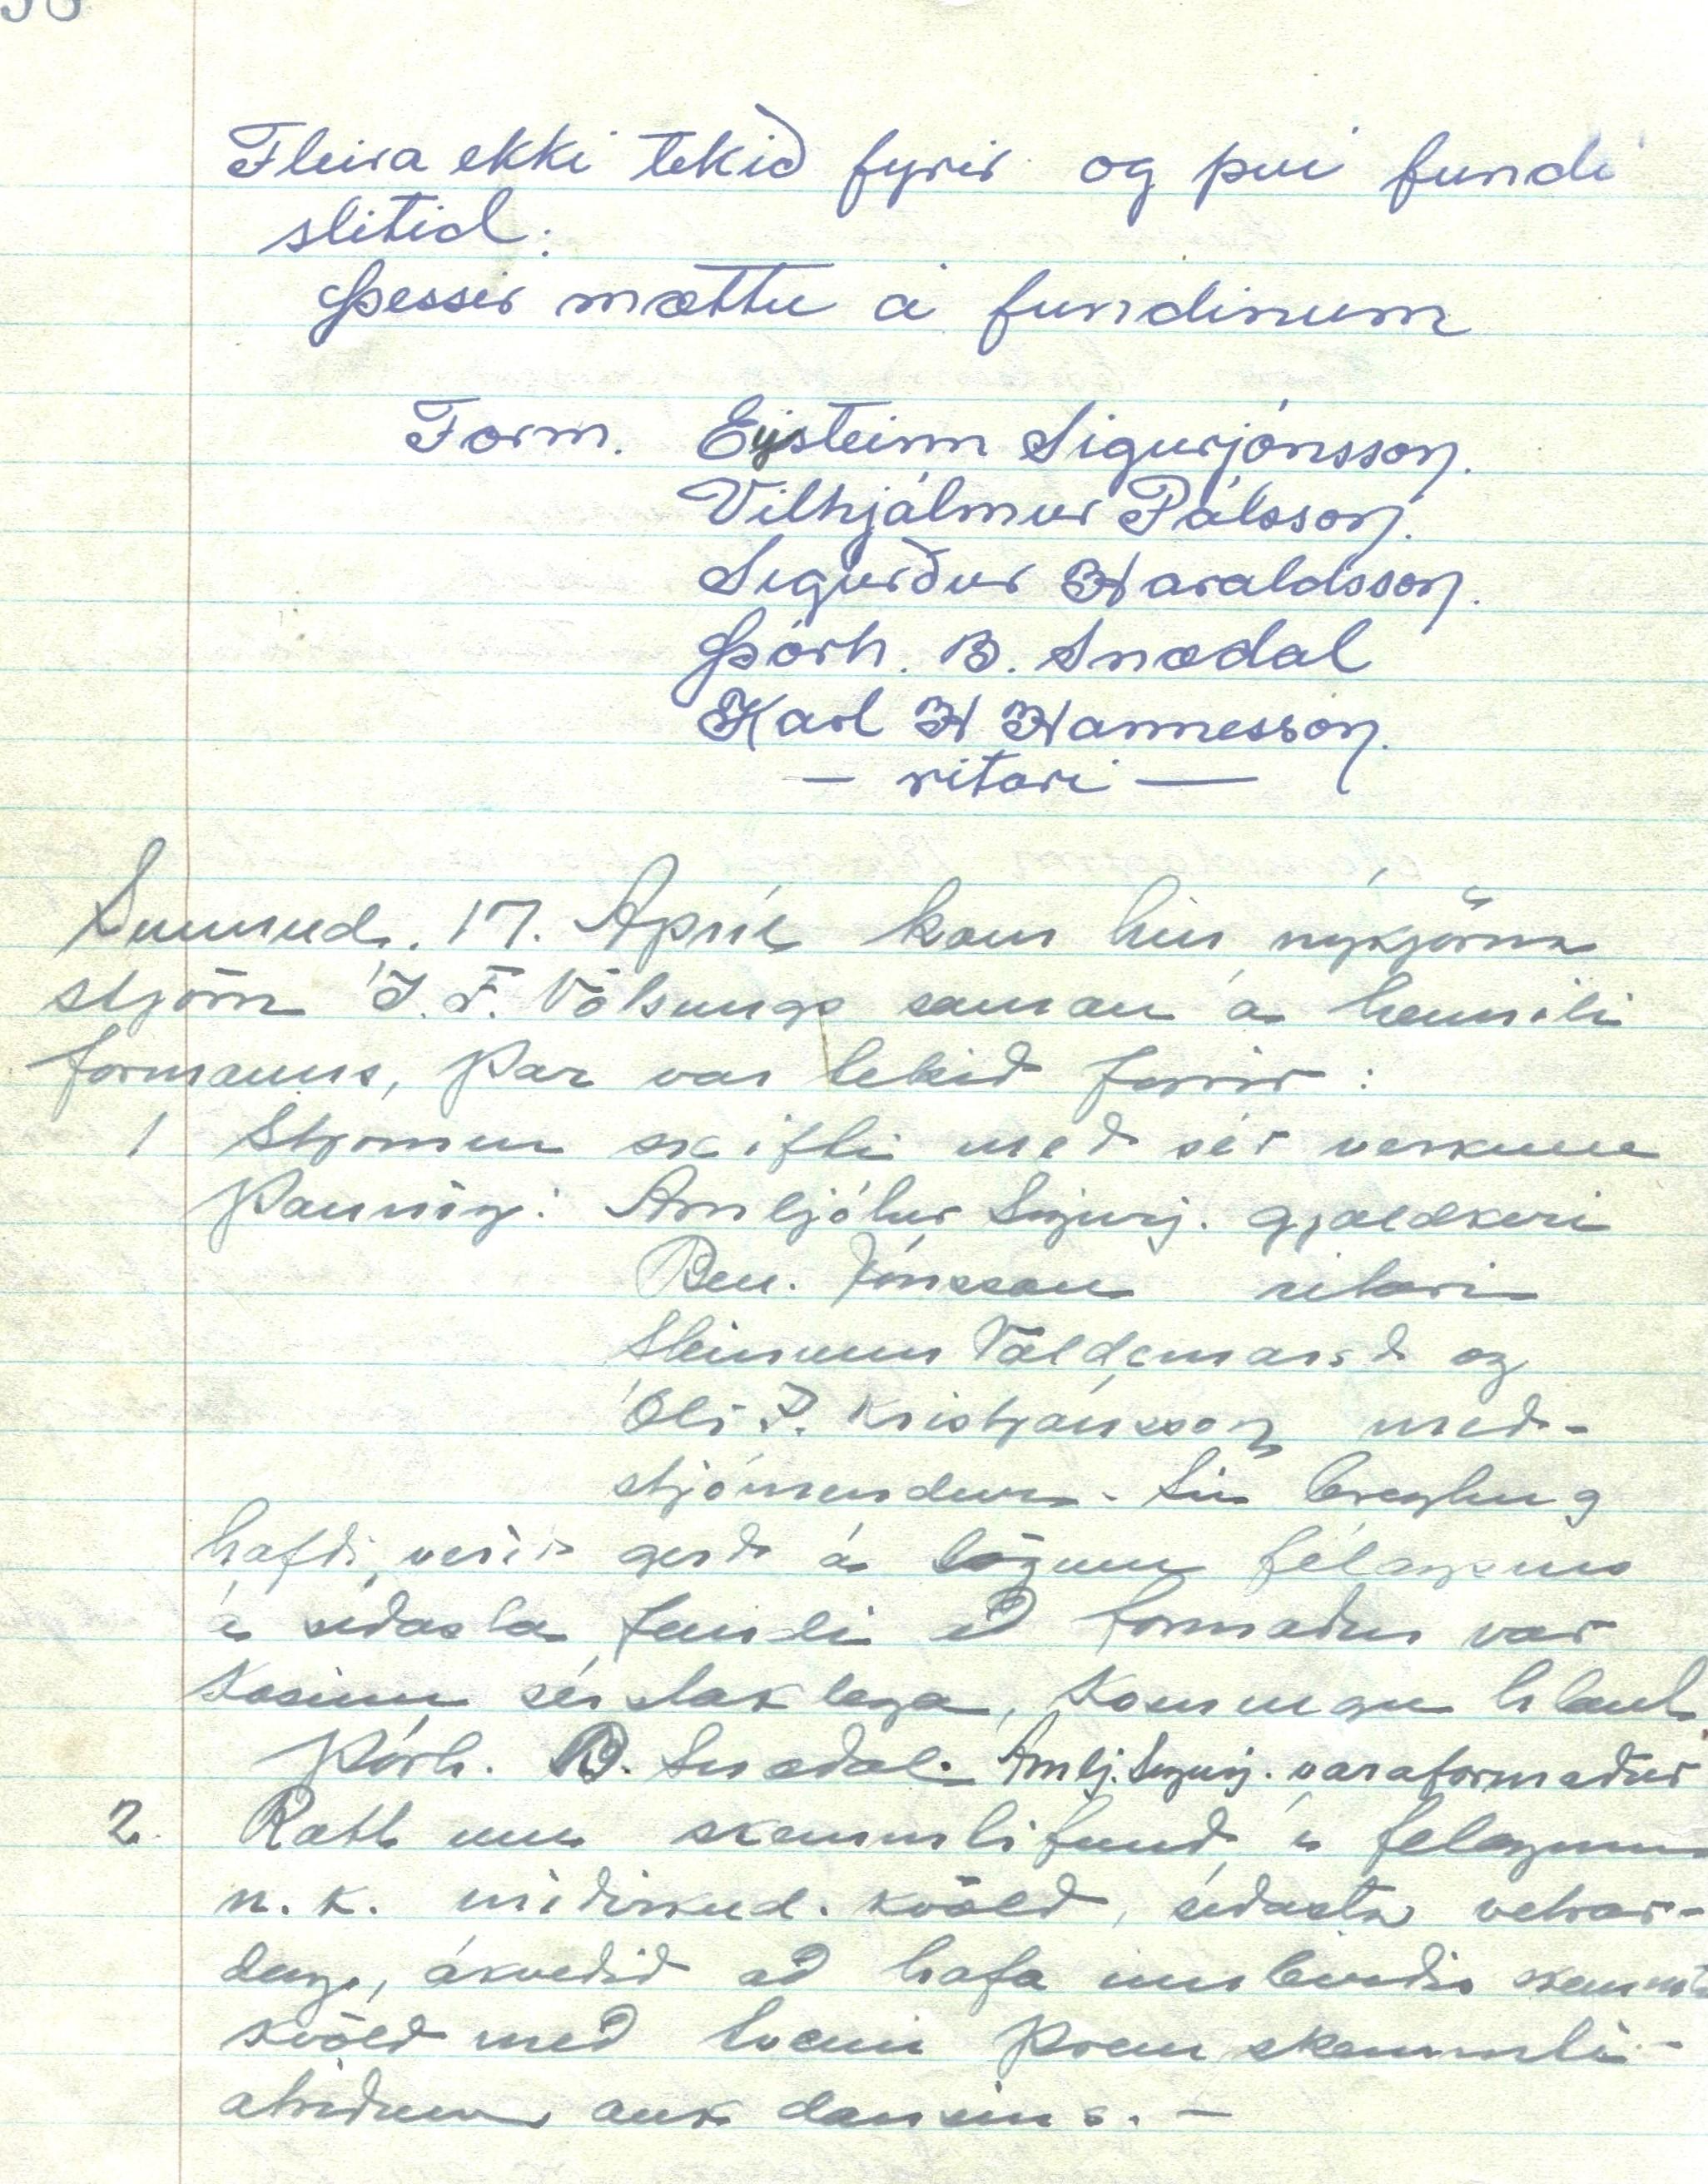 Fleira ekki tekið fyrir og því fundi
slitid.
Þessir mættu á fundinum
Form. Eysteinn Sigurjónsson.
Vilhjálmur Pálsson.
Sigurður Haraldsson.
Þórh. B. Snædal
Karl H Hannesson.
— ritari —
Sunnud. 17. Apríl kom hin nýkjörna
stjórn Í.F. Völsungs saman á heimili
formanns, Þar var tekið fyrir:
1 Stjórnin skifti með sér verkum
Þannig: Arnljótur Sigurj. gjaldkeri
Ben. Jónsson ritari
Steinunn Valdemarsd og
Óli P. Kristjánsson með-
stjórnendur. Sú breyting
hafði verið gerð á lögum félagsins
á síðasta fundi að formaður var
kosinn sérstaklega, Kosningu hlaut
Þórh. B. Snædal. Arnlj. Sigurj. varaformaður
2 Rætt um skemmtifund í félaginu
n.k. miðvikud. kvöld, síðasta vetrar-
dag, ákveðið að hafa innbyrðis skemmti
kvöld með tveim Þrem skemmti-
atriðum auk dansins. —